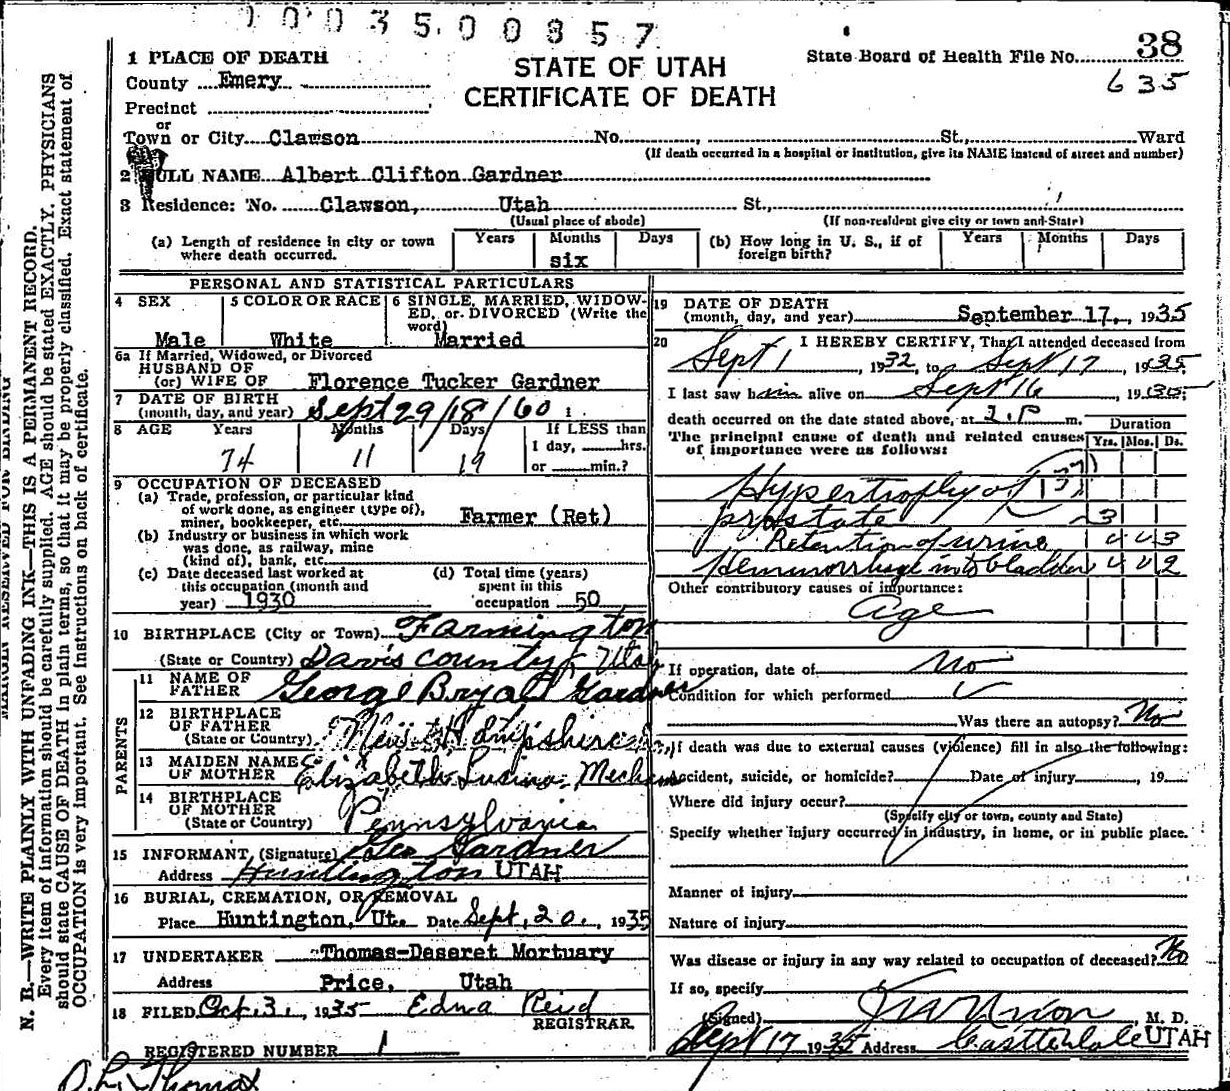 1003500857
38
635
1 PLACE OF DEATH
State Board of Health File No.
STATE OF UTAH
CERTIFICATE OF DEATH
County Emery
Precinct
or
Town or City Clawson No. St., Ward
(If death occurred in a hospital or institution, give its NAME instead of street and number)
2 FULL NAME Albert Clifton Gardner
3 Residence: No. Clawson, Utah St.,
(Usual place of abode) (If non-resident give city or town and State)
(a) Length of residence in city or town where death occurred. Years Months Days
six
(b) How long in U. S., if of foreign birth? Years Months Days
PERSONAL AND STATISTICAL PARTICULARS
4 SEX 5 COLOR OR RACE 6 SINGLE, MARRIED, WIDOWED, or DIVORCED (Write the word)
Male White Married
6a If Married, Widowed, or Divorced
HUSBAND OF
(or) WIFE OF Florence Tucker Gardner
7 DATE OF BIRTH
(month, day, and year) Sept 29/18/60
8 AGE Years Months Days If LESS than
1 day, hrs.
74 11 19 or min.?
9 OCCUPATION OF DECEASED
(a) Trade, profession, or particular kind
of work done, as engineer (type of),
miner, bookkeeper, etc. Farmer (Ret)
(b) Industry or business in which work
was done, as railway, mine
(kind of), bank, etc.
(c) Date deceased last worked at
this occupation (month and
year) 1930
(d) Total time (years)
spent in this
occupation 50
10 BIRTHPLACE (City or Town) Farmington
(State or Country) Davis county, Utah
PARENTS
11 NAME OF
FATHER George Bryant Gardner
12 BIRTHPLACE
OF FATHER
(State or Country) New Hampshire
13 MAIDEN NAME
OF MOTHER Elizabeth Lusina Mecham
14 BIRTHPLACE
OF MOTHER
(State or Country) Pennsylvania
15 INFORMANT (Signature) Geo Gardner
Address Huntington UTAH
16 BURIAL, CREMATION, OR REMOVAL
Place Huntington, Ut. Date Sept, 20, 1935
17 UNDERTAKER Thomas-Deseret Mortuary
Address Price, Utah
18 FILED Oct. 3, 1935 Edna Reid
REGISTRAR
REGISTERED NUMBER 1
19 DATE OF DEATH
(month, day, and year) September 17, 1935
20 I HEREBY CERTIFY, That I attended deceased from
Sept 1, 1932, to Sept 17, 1935.
I last saw him alive on Sept 16, 1935;
death occurred on the date stated above, at 2 P m.
Duration
The principal cause of death and related causes
of importance were as follows: Yrs. Mos. Ds.
137
Hypertrophy of
prostate 3
Retention of urine 3
Hemmorrhage into bladder 2
Other contributory causes of importance:
Age
If operation, date of No
Condition for which performed
Was there an autopsy? No
If death was due to external causes (violence) fill in also the following:
Accident, suicide, or homicide? Date of injury , 19
Where did injury occur?
(Specify city or town, county and State)
Specify whether injury occurred in industry, in home, or in public place.
Manner of injury
Nature of injury
Was disease or injury in any way related to occupation of deceased? No
If so, specify
(Signed) , M. D.
Sept 17 1935 Address UTAH
N. B.—WRITE PLAINLY WITH UNFADING INK—THIS IS A PERMANENT RECORD.
Every item of information should be carefully supplied. AGE should be stated EXACTLY. PHYSICIANS
should state CAUSE OF DEATH in plain terms, so that it may be properly classified. Exact statement of
OCCUPATION is very important. See instructions on back of certificate.
MARGIN RESERVED FOR BINDING